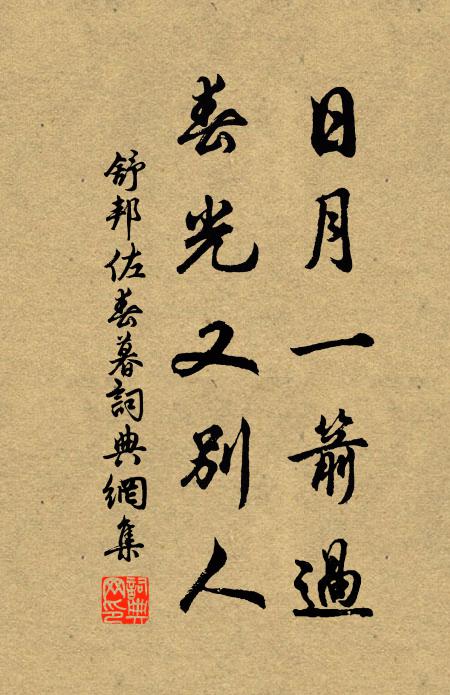 日月一箭過
春光又別人
舒邦佐春暮詞典網集
詞典網印